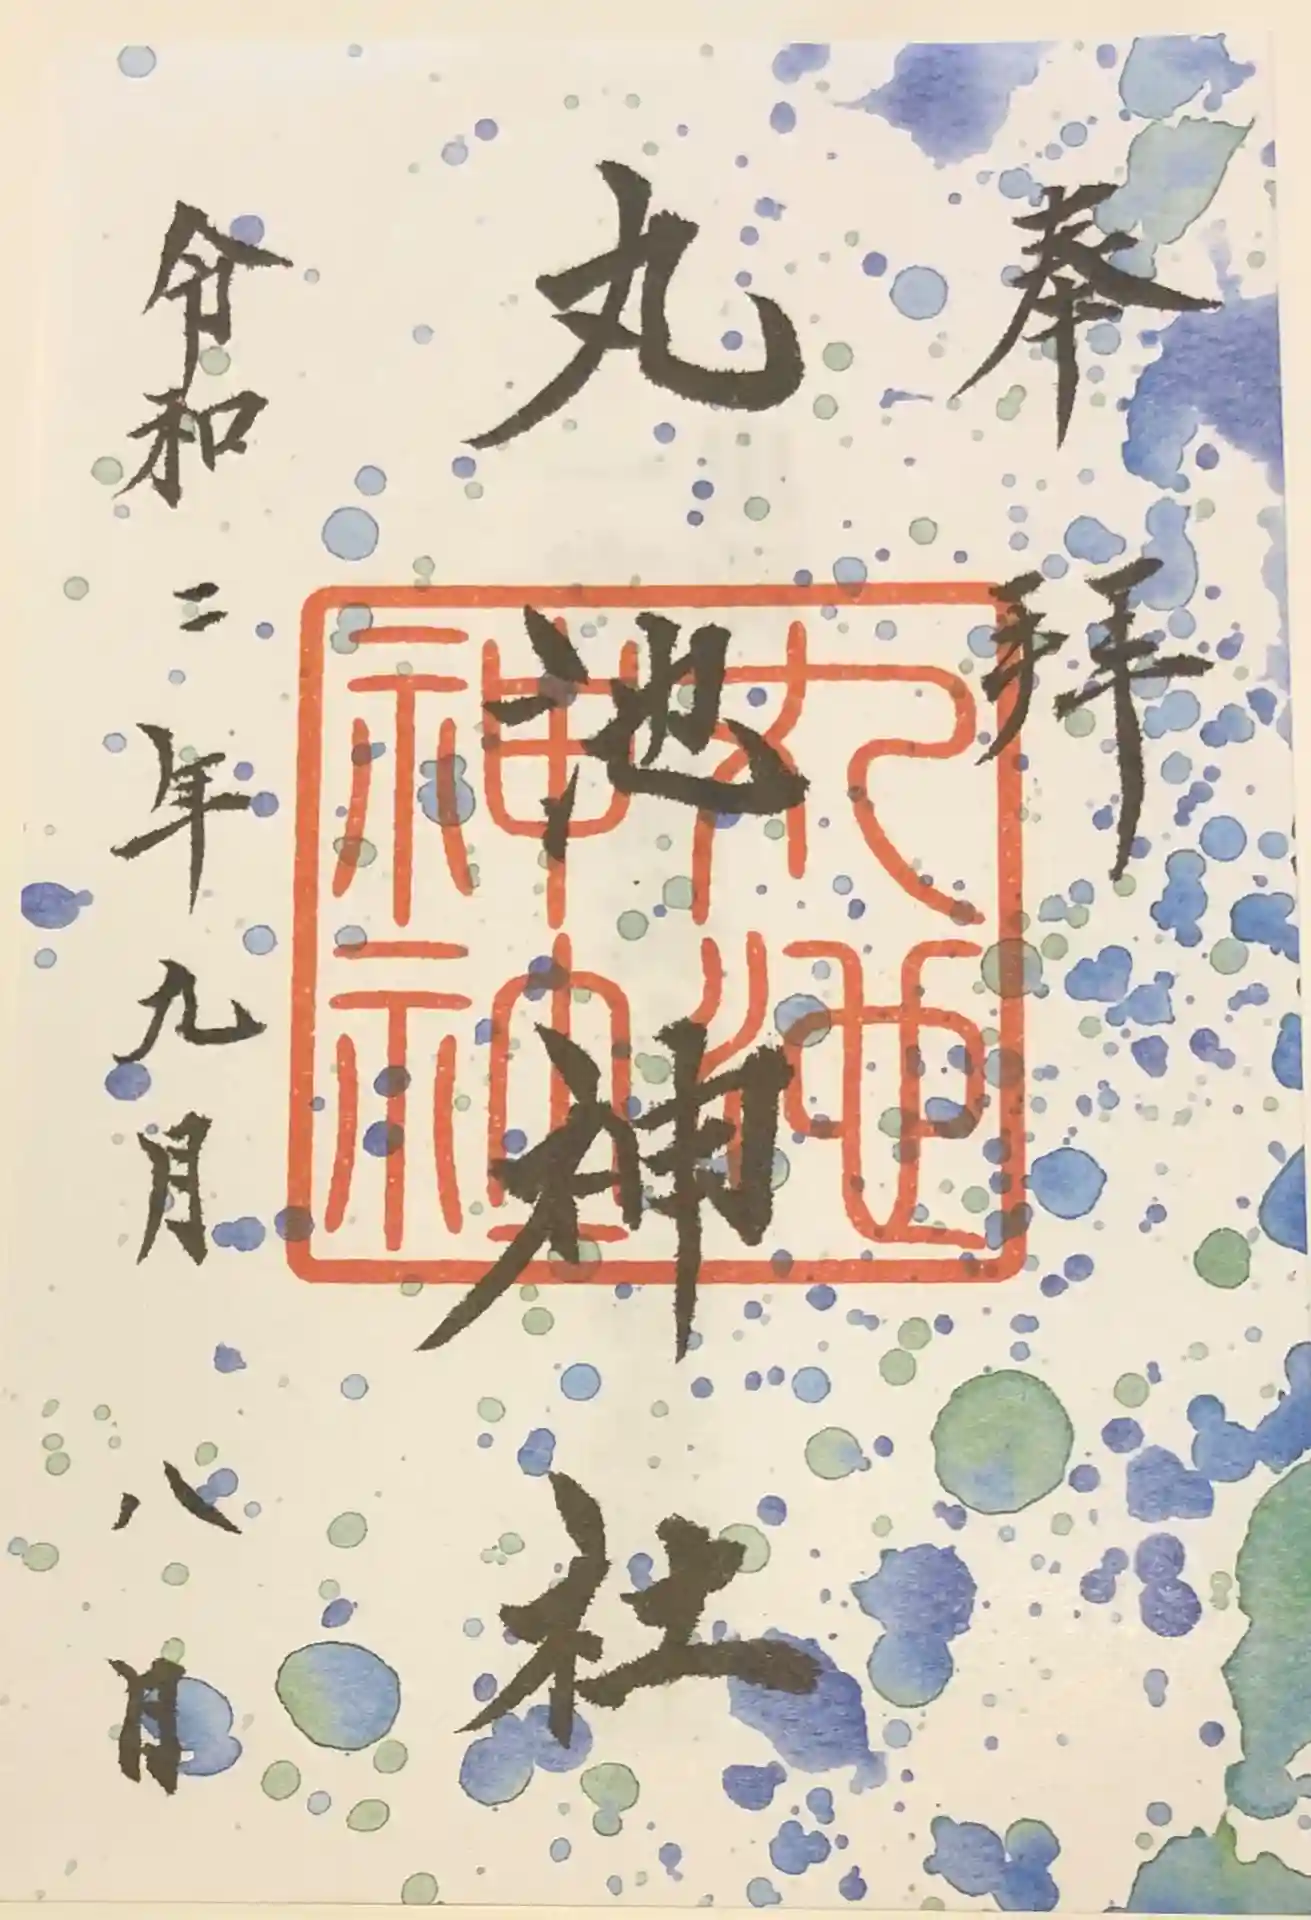 奉拝
丸池神社
丸池神社
令和二年九月八日